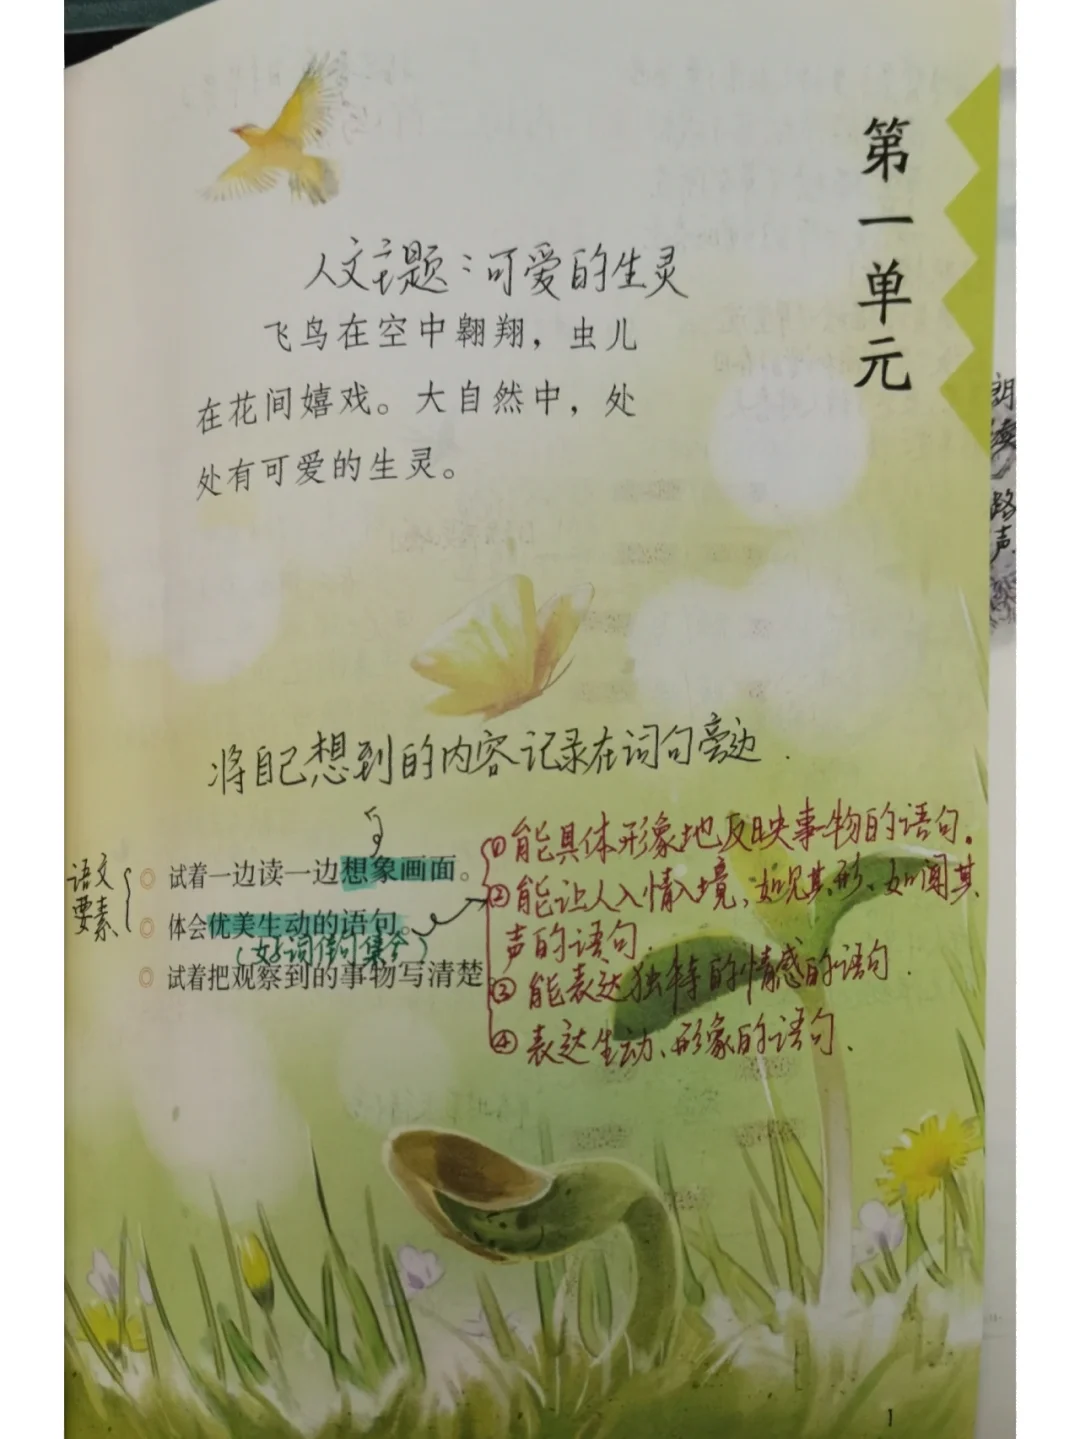 第一单元
人文主题：可爱的生灵
飞鸟在空中翱翔，虫儿
在花间嬉戏。大自然中，处
处有可爱的生灵。
将自己想到的内容记录在词句旁边.
语文
要素
试着一边读一边想象画面。
体会优美生动的语句。
(好词佳句集合)
试着把观察到的事物写清楚
①能具体形象地反映事物的语句。
②能让人入情入境，如见其形、如闻其
声的语句.
③能表达独特的情感的语句.
④表达生动、形象的语句.
朗
读
路
声
1